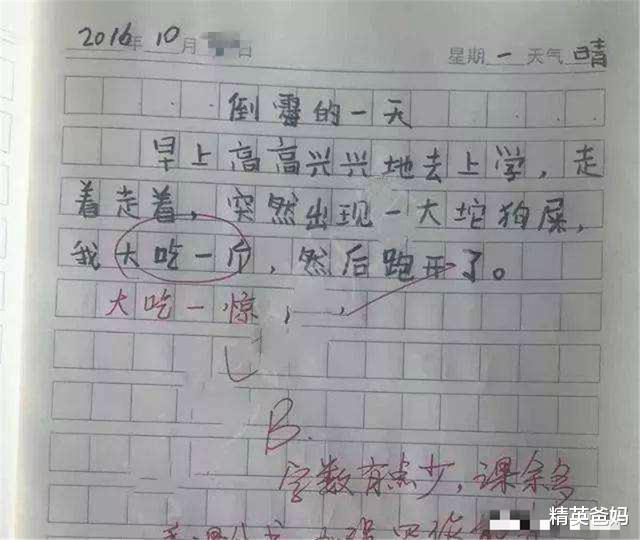 2016年10月 日 星期一天气晴
倒霉的一天
早上高高兴兴地去上学，走
着走着，突然出现一大坨狗屎，
我大吃一斤，然后跑开了。
大吃一惊，
B.
字数有点少，课余多
精英爸妈